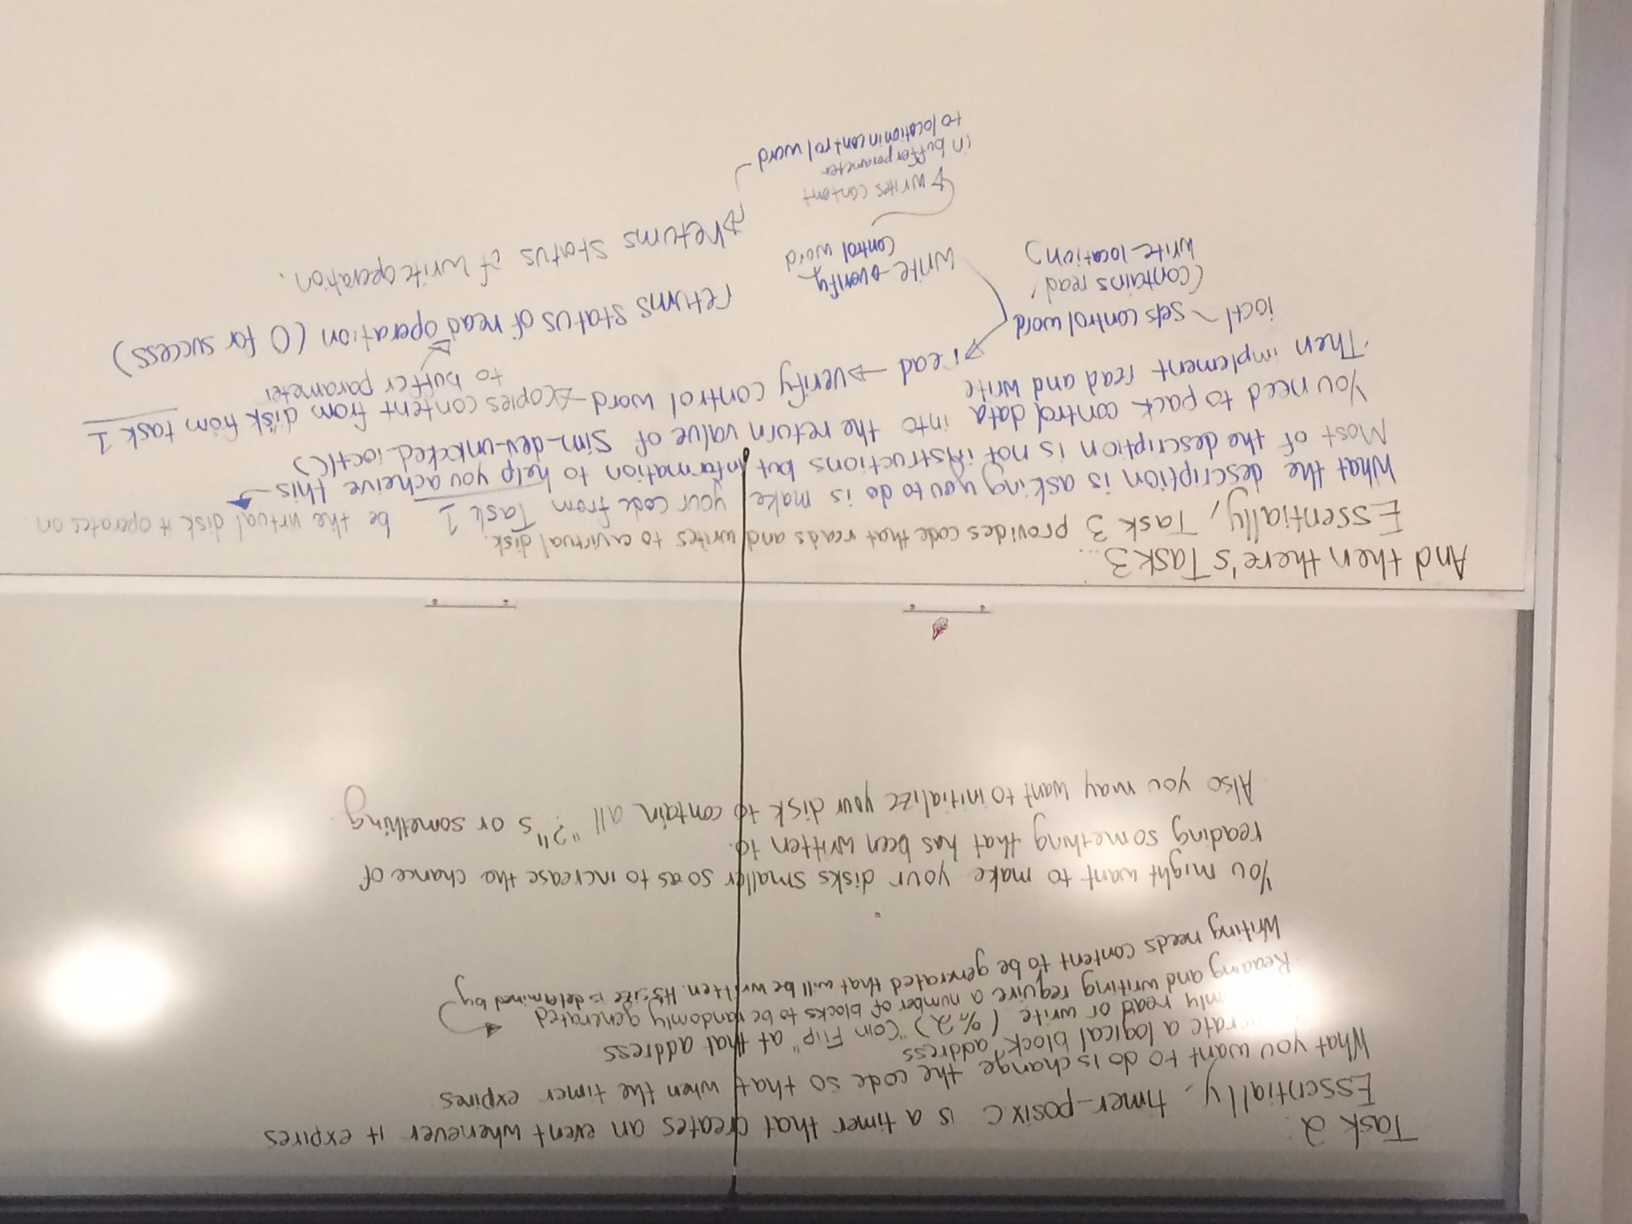 Task 2:
Essentially, timer_posix.c is a timer that creates an event whenever it expires
What you want to do is change the code so that when the timer expires
a logical block address
read or write (% 2) "Coin Flip" at that address
Reading and writing require a number of blocks to be randomly generated
Writing needs content to be generated that will be written. It's size is determined by
You might want to make your disks smaller so as to increase the chance of
reading something that has been written to.
Also you may want to initialize your disk to contain all "?"s or something
And then there's Task 3...
Essentially, Task 3 provides code that reads and writes to a virtual disk.
What the description is asking you to do is make your code from Task 1 be the virtual disk it operates on
Most of the description is not instructions but information to help you acheive this
You need to pack control data into the return value of sim_dev_unlocked_ioctl()
Then implement read and write
read → verify control word → copies content from disk from task 1
to buffer parameter
ioctl ~ sets control word
(contains read/
write location)
returns status of read operation (0 for success)
write → verify
control word
→ returns status of write operation.
→ writes content
in buffer parameter
to location in control word